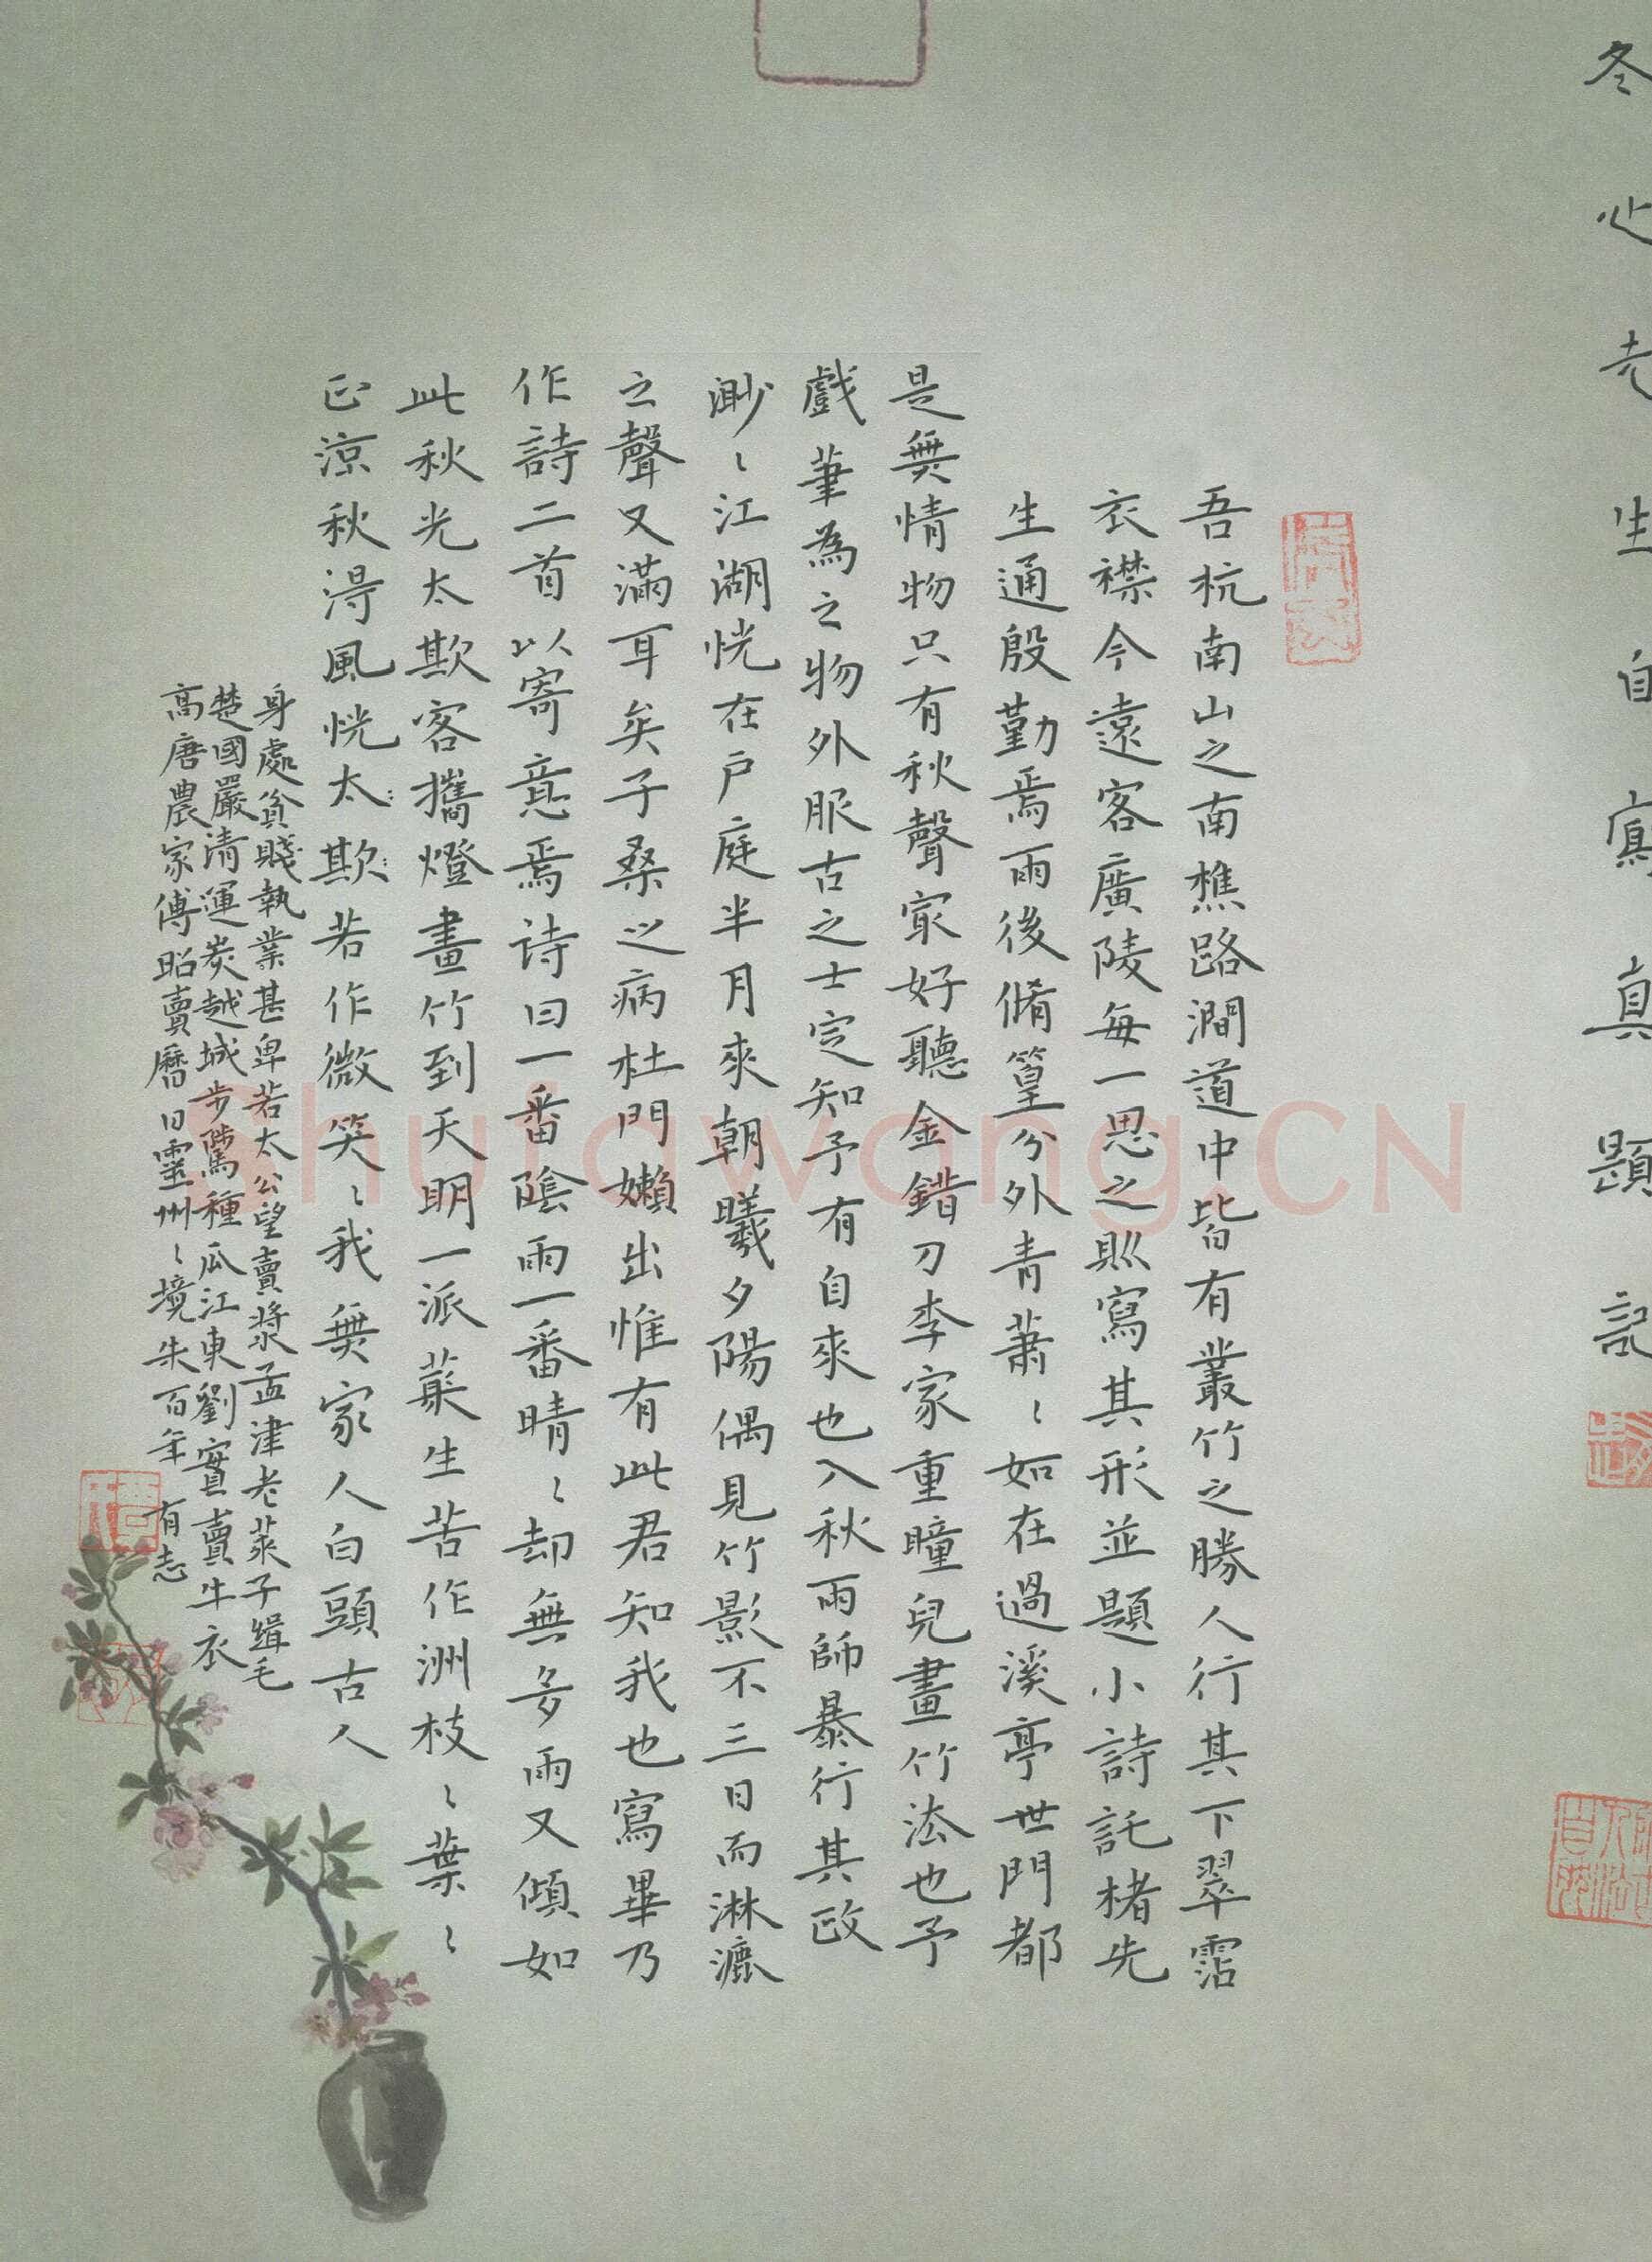 冬心先生自寫真題記
吾杭南山之南樵路澗道中皆有叢竹之勝人行其下翠霑
衣襟今遠客廣陵每一思之輒寫其形並題小詩託楮先
生通殷勤焉雨後脩篁分外青蕭〻如在過溪亭世門都
是無情物只有秋聲冣好聽金錯刀李家重瞳兒畫竹法也予
戲筆為之物外服古之士定知予有自來也入秋雨師暴行其政
渺〻江湖恍在戶庭半月來朝曦夕陽偶見竹影不三日而淋漉
之聲又滿耳矣子桑之病杜門嬾出惟有此君知我也寫畢乃
作詩二首以寄意焉诗曰一番陰雨一番晴〻却無多雨又傾如
此秋光太欺客攜燈畫竹到天明一派蕀生苦作洲枝〻葉〻
正涼秋淂風恍太欺若作微笑〻我無家人白頭古人
身處貧賤執業甚卑若太公望賣漿孟津老萊子緝毛
楚國嚴清運炭越城步騭種瓜江東劉實賣牛衣
高唐農家傅昭賣曆日靈州〻境朱百年
有志
Shufawang.CN